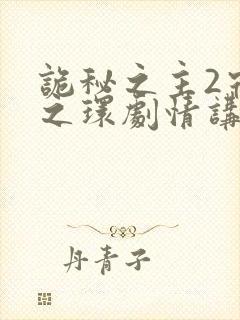 詭秘之主2宿
之環劇情講
丹青子